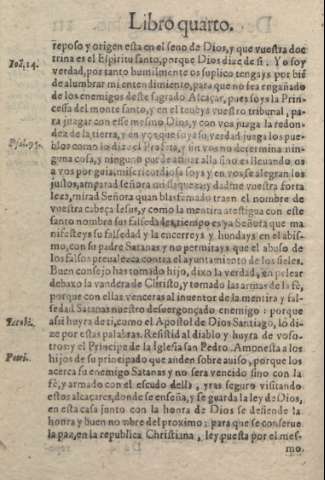 Libro quarto.
reposo y origen esta en el seno de Dios, y que vuestra doc
trina es el Espiritu santo, porque Dios dize de si. Yo soy
Ioã, 14.
verdad, por tanto humilmente os suplico tengays por biẽ
de alumbrar mi entendimiento, para que no sea engañado
de los enemigos deste sagrado Alcaçar, pues soys la Prin-
cessa del monte santo, y en el teneys vuestro tribunal, pa-
ra juzgar con esse mesmo Dios, y con vos juzga la redon-
dez de la tierra, y en vos que soys su verdad, juzga los pue-
Psal. 95.
blos como lo dize el Profeta, y sin vos no determina nin-
guna cosa, y ninguno puede atinar alla sino es lleuando os
a vos por guia, misericordiosa soys y en vos se alegran los
justos, amparad señora mi flaqueza y dadme vuestra forta
leza, mirad Señora quan blasfemado traen el nombre de
vuestra cabeça Iesus, y como la mentira atestigua con este
santo nombre sus falsedades, tiempo es ya Señora que ma
nifesteys su falsedad y la encerreys y hundays en el abis-
mo, con su padre Satanas y no permitays que el abuso de
los falsos preualezca contra el ayuntamiento de los fieles.
Buen consejo has tomado hijo, dixo la verdad, en pelear
debaxo la vandera de Christo, y tomado las armas de la fè,
porque con ellas venceras al inuentor de la mentira y fal-
sedad Satanas nuestro desuergonçado enemigo: porque
Iacobi.
assi huyra de ti, como el Apostol de Dios Santiago, lo di-
ze por estas palabras. Resistid al diablo y huyra de voso-
Petri.
tros: y el Principe de la Iglesia san Pedro. Amonesta a los
hijos de su principado que anden sobre auiso, porque los
acerca su enemigo Satanas y no sera vencido sino con la
fè, y armado con el escudo della, yras seguro visitando
estos alcaçares, donde se enseña, y se guarda la ley de Dios,
en esta casa junto con la honra de Dios se defiende la
honra y buen nombre del proximo: para que se conserue
la paz, en la republica Christiana, ley puesta por el mes-
mo